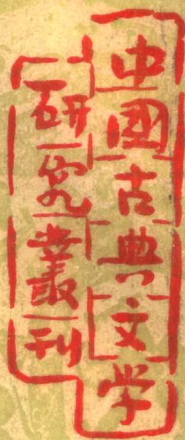 中國古典文学
研究叢刊